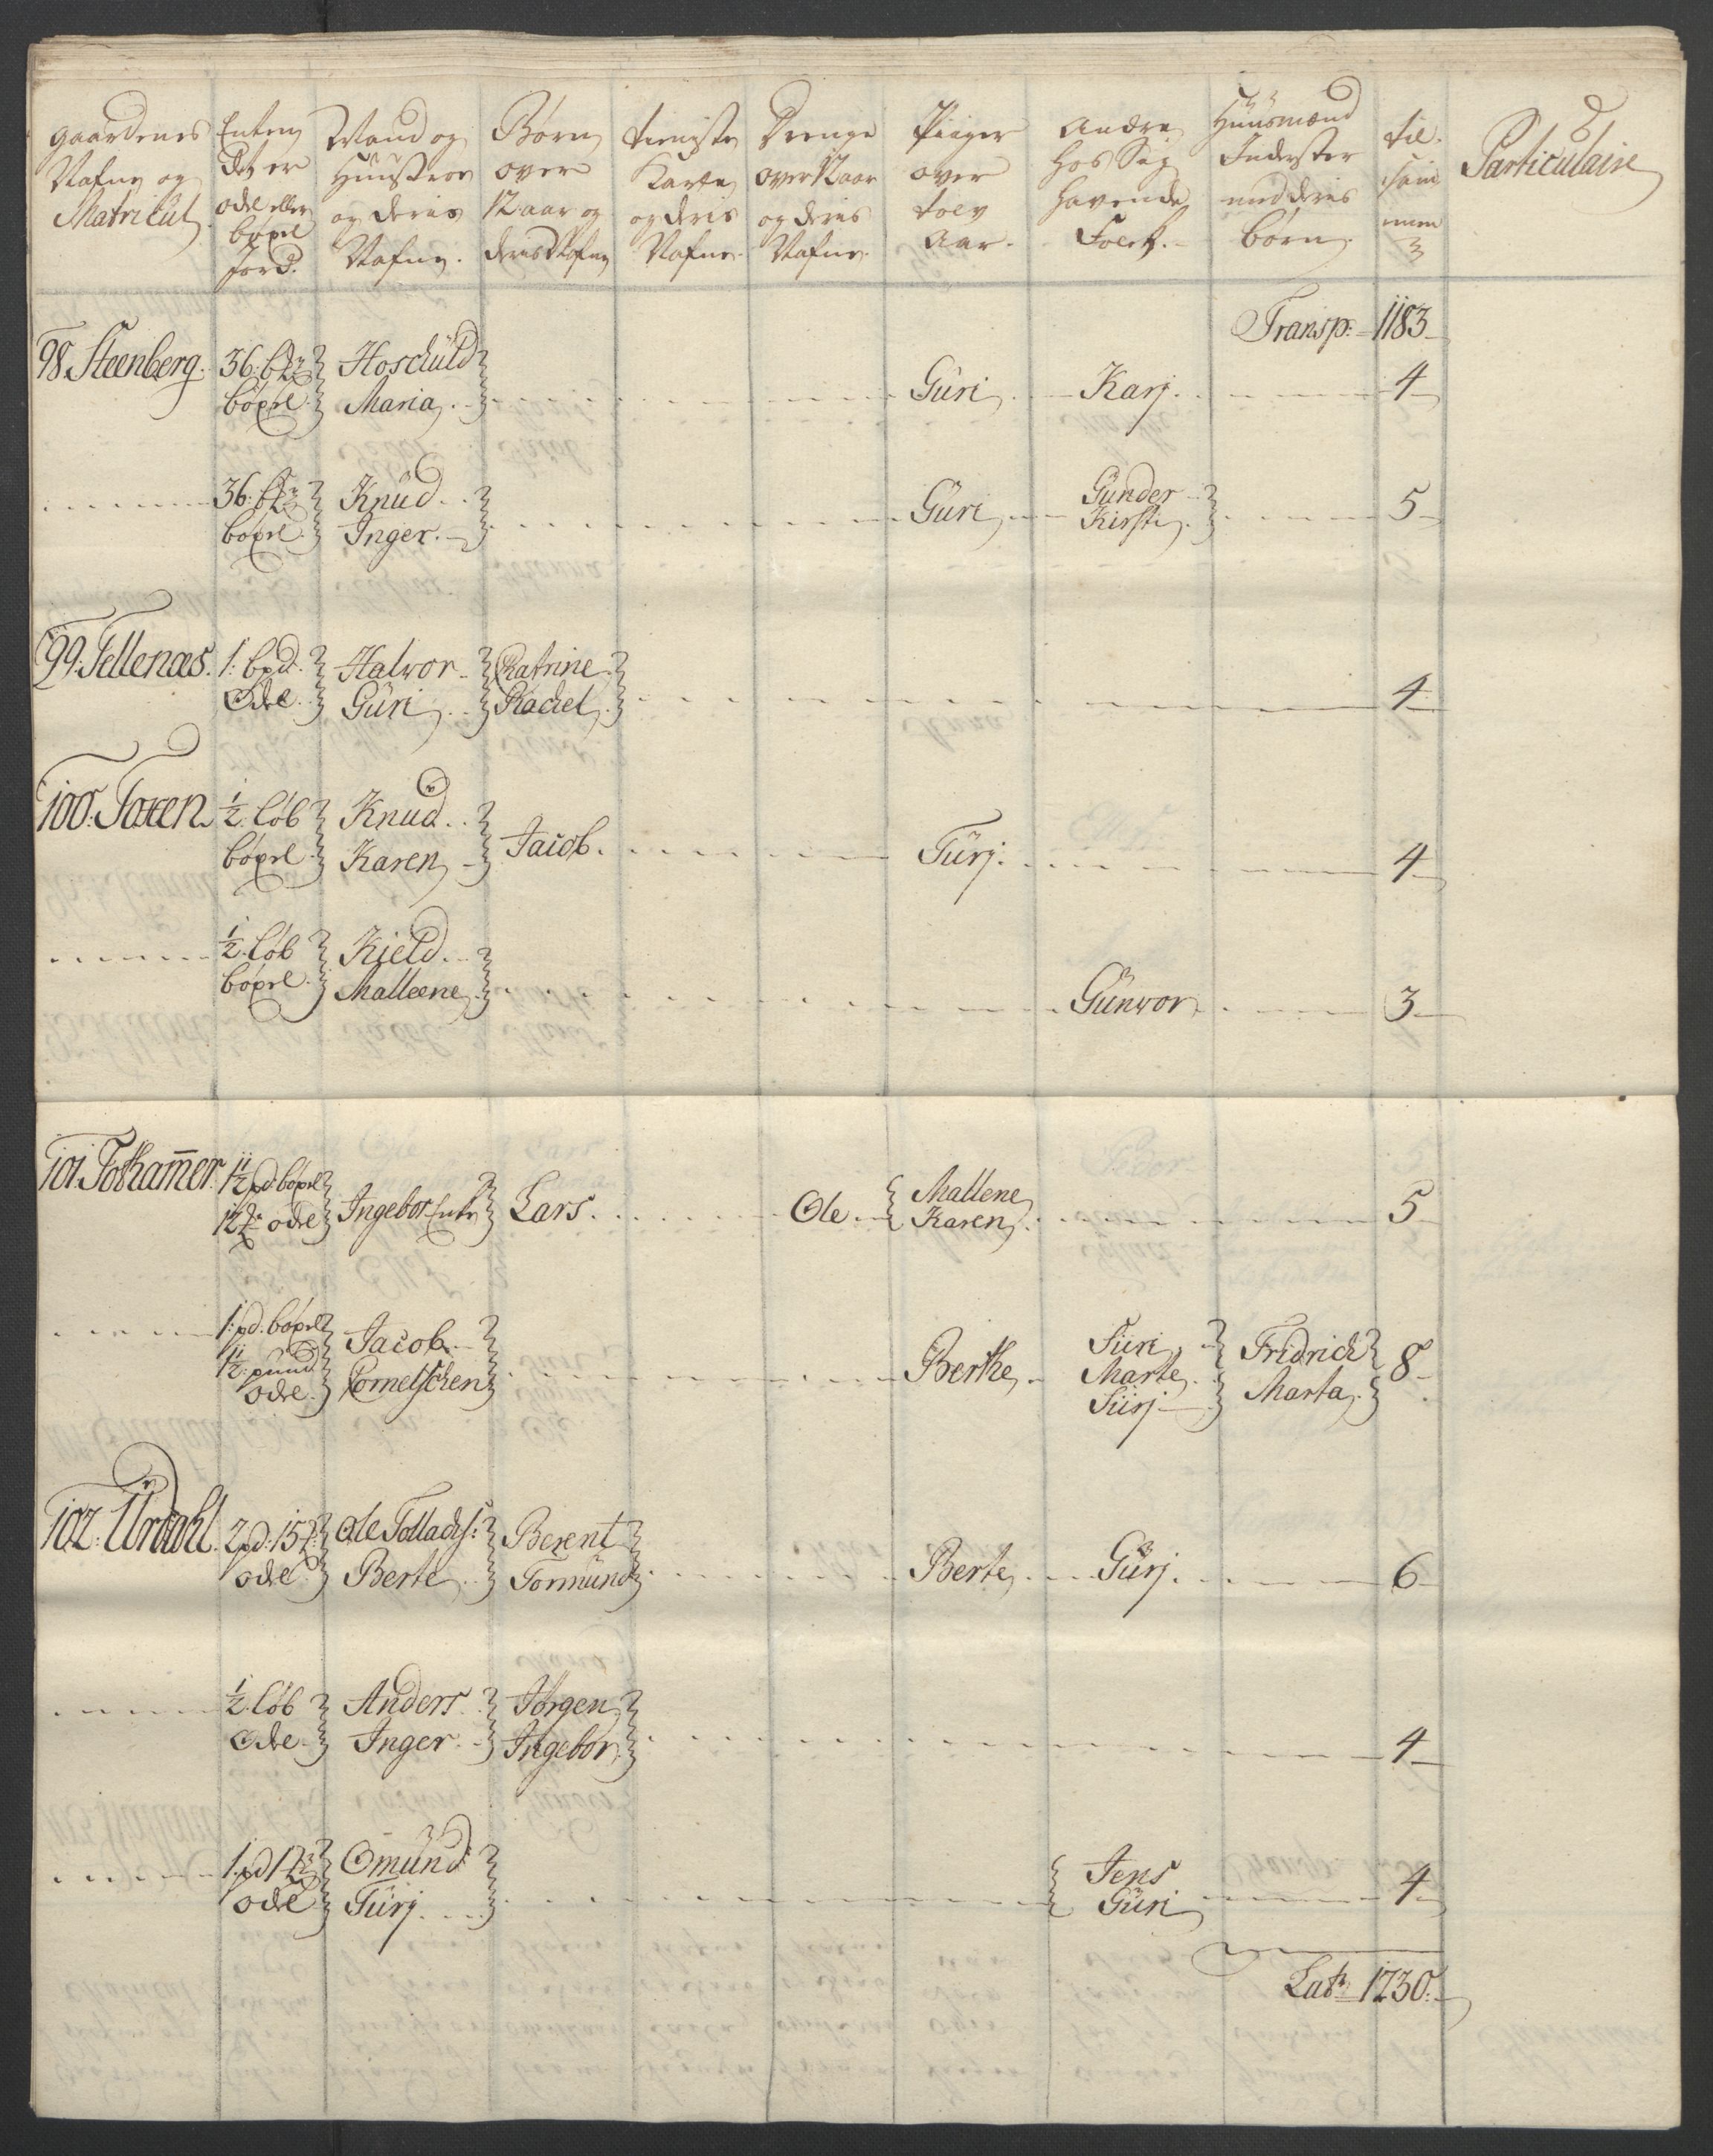 Gaardenes Nafne og Matricul
Enten det er odel eller böxel Jord.
Mand og Huustroe og deris Nafne.
Börn over 12 aar og deris Nafne
tieniste Karle og deris Nafne.
Drenge over 12 aar og deris Nafne.
Piiger over tolv Aar.
Andre hos Sig havende Folck.
Huusmænd Inderster med deris börn.
til sam men
Particulaire
Transp: 1183
98. Steenberg. 36: böxel. Hoschüld Maria. Güri Karj. 4
36: böxel. Knüd. Inger. Güri Günder Kirsti. 5
99. Tellenæs. 1: bpd. Odel. Halvor Güri Catrine Rachel. 4
100. Toxen. ½ löb böxel. Knud. Karen Jacob. Türj. 4
½ löb böxel. Kield. Malleene Günvor 3
101. Totham̅er. 1½ pd. böxel 12 odel Ingebor Enke Lars. Ole. Mallene Karen. 5
1: pd. böxel 1½ pund odel. Jacob. Cornelschen Berthe. Siiri Marte. Siirj Fridrich Marta. 8
102. Ürdahl. 2 pd: 15 odel Ole Tollachs: Berte Berent Tormünd Berte Gürj. 6
½ löb Odel Anders Inger Jörgen Ingebor 4
1. pd 12 odel Omünd Türj. Jens Güri 4
Lats 1230.